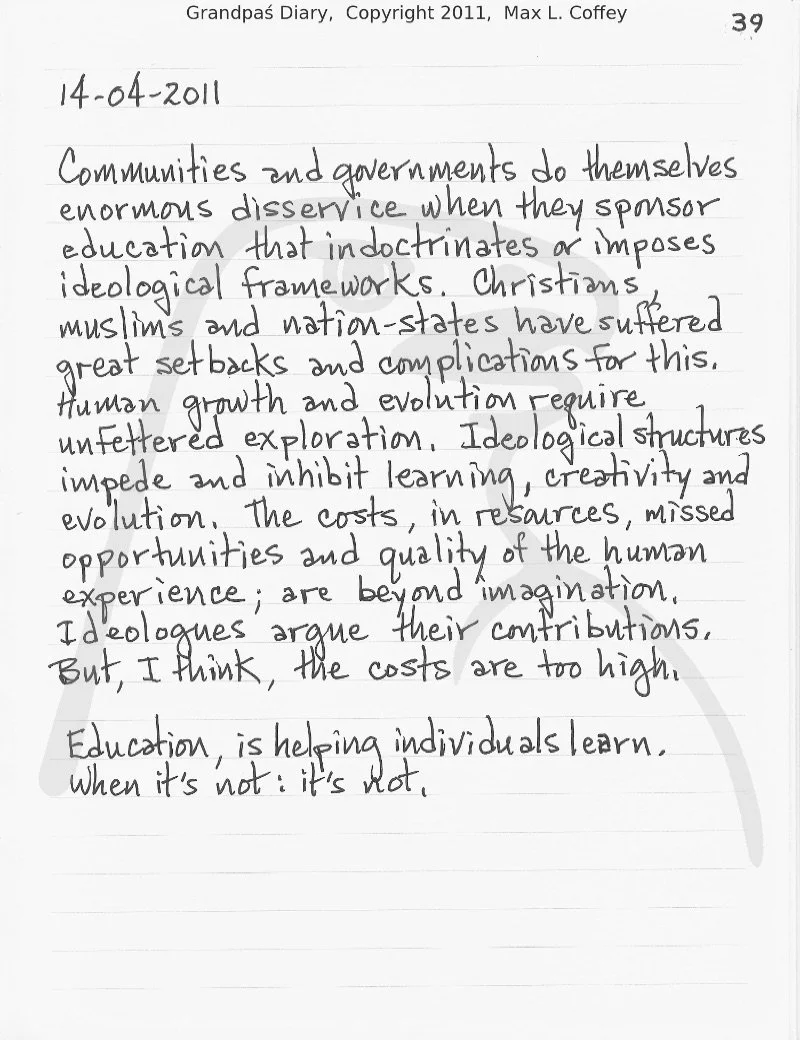 Grandpaś Diary, Copyright 2011, Max L. Coffey
39
14-04-2011
Communities and governments do themselves
enormous disservice when they sponsor
education that indoctrinates or imposes
ideological frameworks. Christians,
muslims and nation-states have suffered
great setbacks and complications for this.
Human growth and evolution require
unfettered exploration. Ideological structures
impede and inhibit learning, creativity and
evolution. The costs, in resources, missed
opportunities and quality of the human
experience; are beyond imagination.
Ideologues argue their contributions.
But, I think, the costs are too high.
Education, is helping individuals learn.
When it's not: it's not.